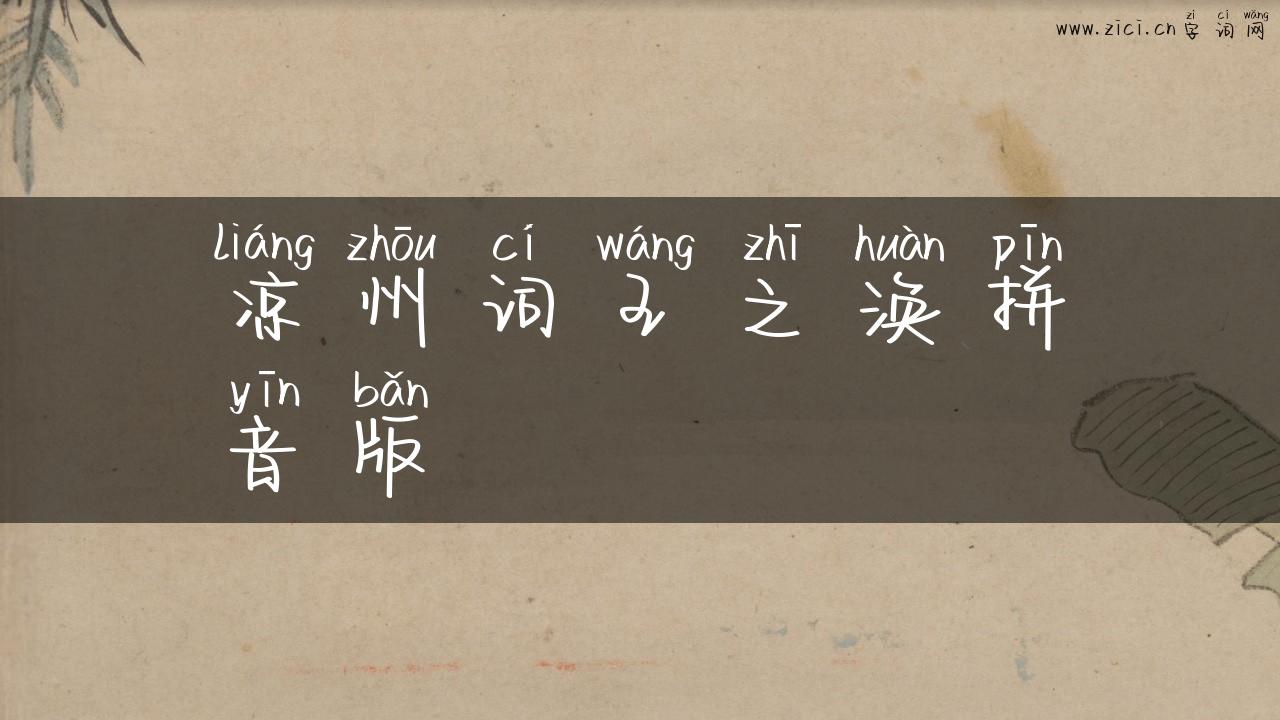 zì cí wǎng
www.zici.cn 字词网
liáng zhōu cí wáng zhī huàn pīn
凉州词王之涣拼
yīn bǎn
音版